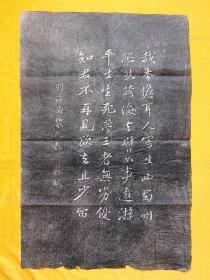 我本儋耳人寄生西蜀州
忽然跨海去譬如事遠遊
平生生死夢三者無劣優
知君不再見欲去且少留
別海南黎民表 蘇軾